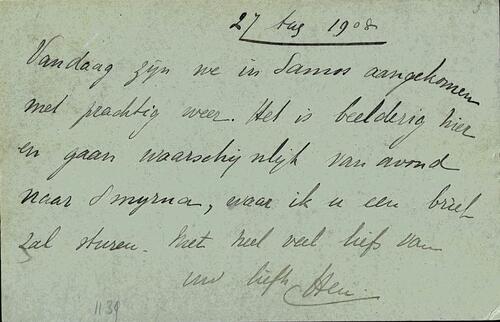 27 Aug 1908
Vandaag zijn we in Samos aangekomen
met prachtig weer. Het is beelderig hier
en gaan waarschijnlijk van avond
naar Smyrna, waar ik u een brief
zal sturen. Met heel veel liefs van
uw liefh
1139